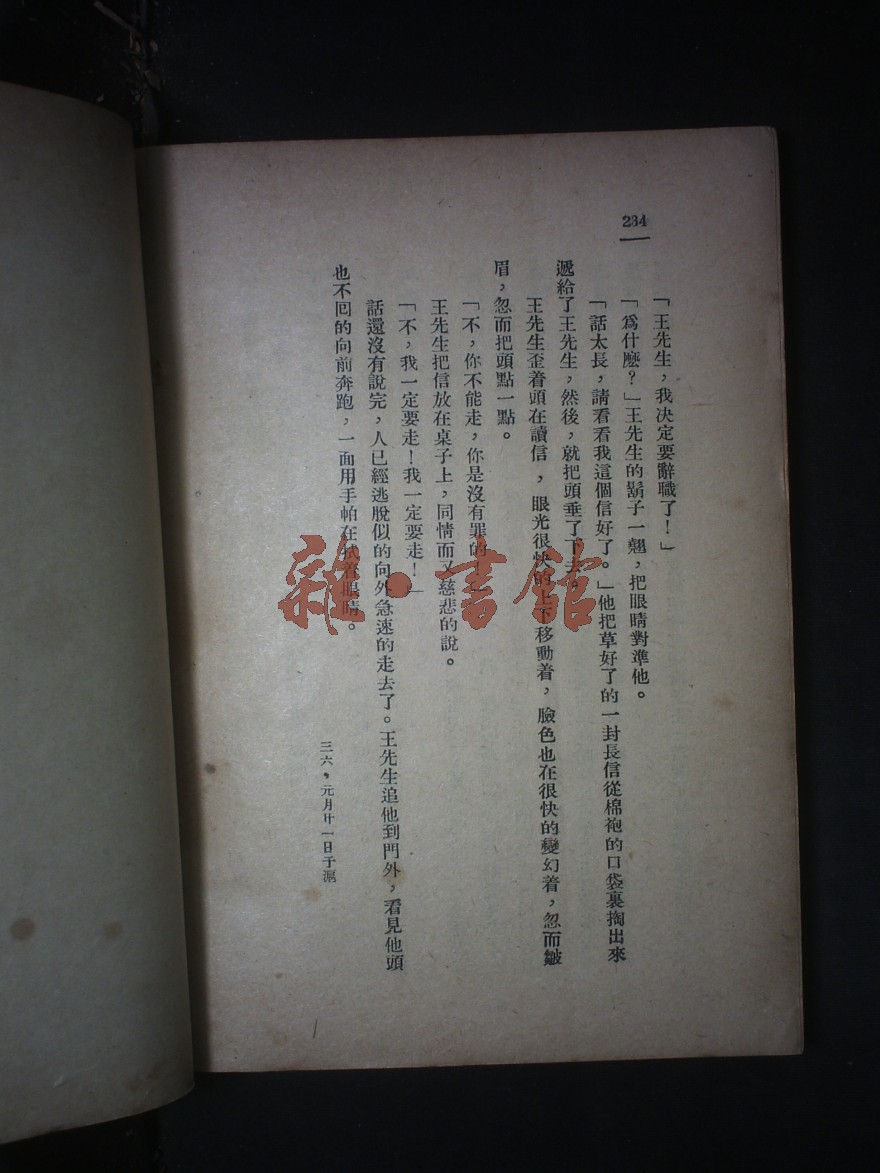 234
「王先生，我決定要辭職了！」
「爲什麼？」王先生的鬍子一翹，把眼睛對準他。
「話太長，請看看我這個信好了。」他把草好了的一封長信從棉袍的口袋裏掏出來
遞給了王先生，然後，就把頭垂了下去。
王先生歪着頭在讀信，眼光很快的上下移動着，臉色也在很快的變幻着，忽而皺
眉，忽而把頭點一點。
「不，你不能走，你是沒有罪的
王先生把信放在桌子上，同情而又慈悲的說。
「不，我一定要走！我一定要走！」
話還沒有說完，人已經逃脫似的向外急速的走去了。王先生追他到門外，看見他頭
也不囘的向前奔跑，一面用手帕在拭着眼睛。
三六，元月廿一日于滬
雜·書館